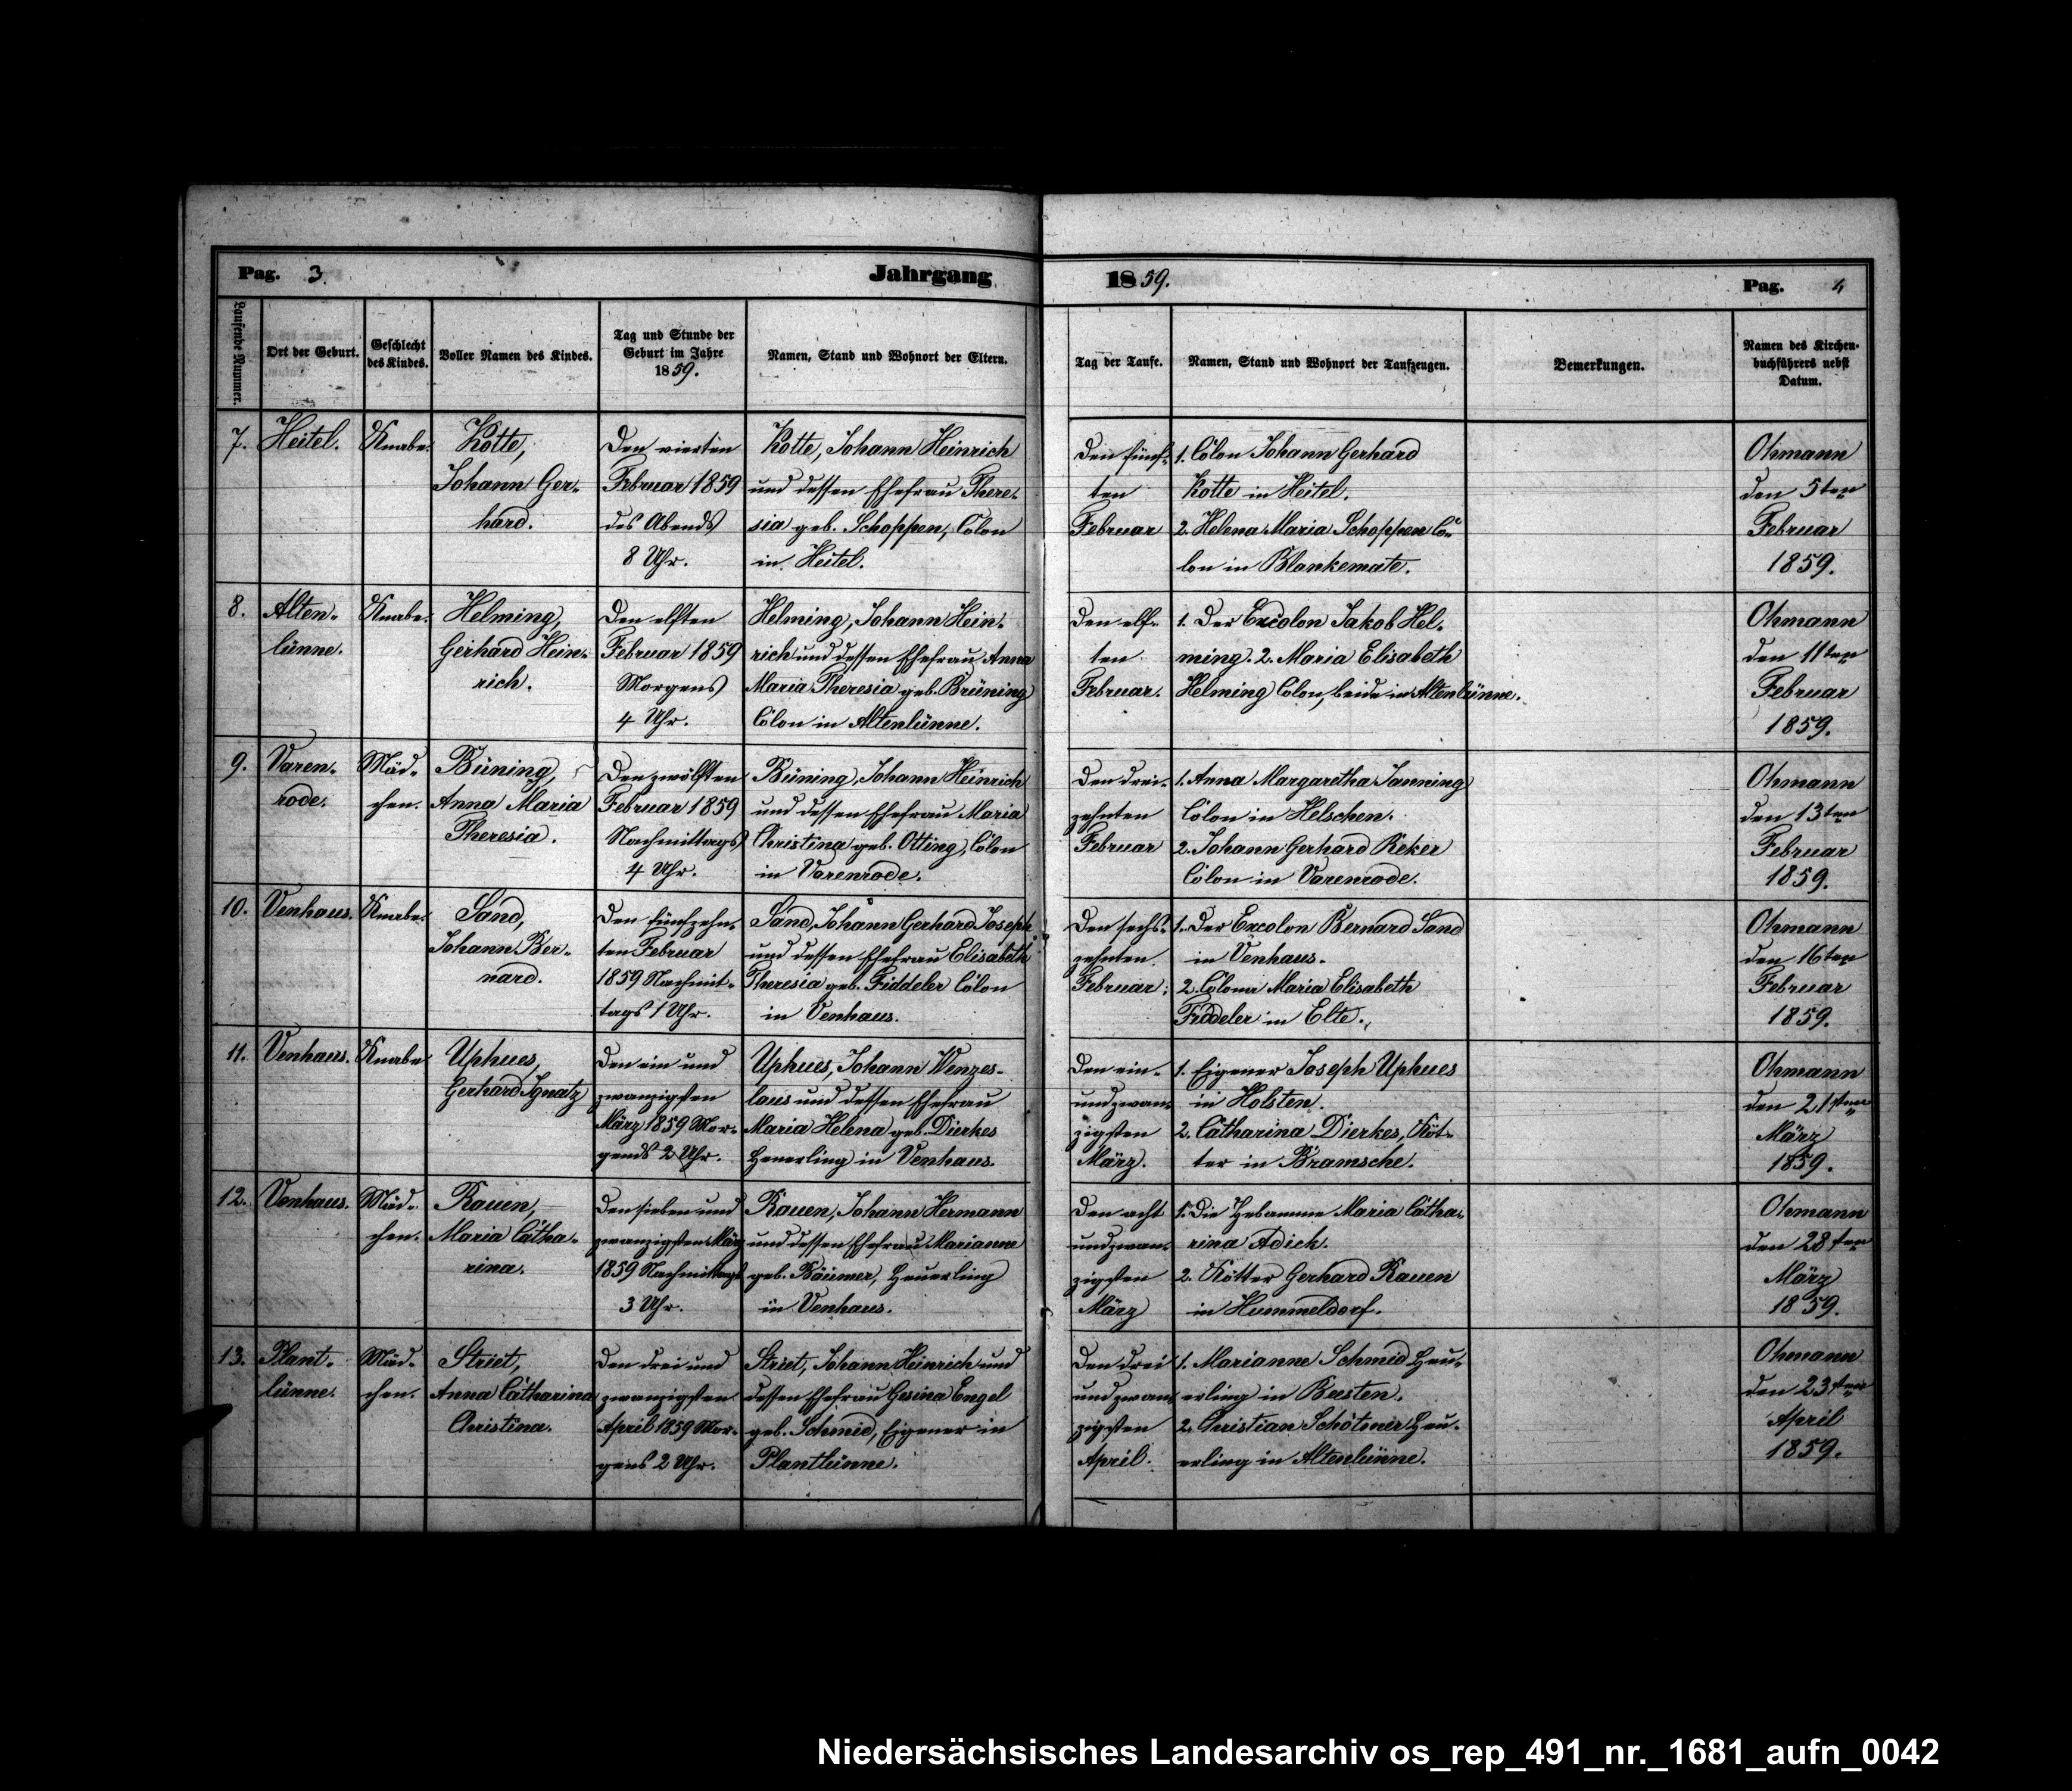 Pag. 3.
Jahrgang
1859.
Pag. 4
Laufende Nummer.
Ort der Geburt.
Geschlecht
des Kindes.
Voller Namen des Kindes.
Tag und Stunde der
Geburt im Jahre
1859.
Namen, Stand und Wohnort der Eltern.
Tag der Taufe.
Namen, Stand und Wohnort der Taufzeugen.
Bemerkungen.
Namen des Kirchen-
buchführers nebst
Datum.
7.
Heitel.
Knabe.
Kotte,
Johann Ger-
hard.
Den vierten
Februar 1859
des Abends
8 Uhr.
Kotte, Johann Heinrich
und dessen Ehefrau There-
sia geb. Schoppen, Colon
in Heitel.
Den fünf-
ten
Februar
1. Colon Johann Gerhard
Kotte in Heitel.
2. Helena Maria Schoppen Co-
lon in Blankemate.
Ohmann
den 5ten
Februar
1859.
8.
Alten-
lünne.
Knabe.
Helming,
Gerhard Hein-
rich.
Den elften
Februar 1859
Morgens
4 Uhr.
Helming, Johann Hein-
rich und dessen Ehefrau Anna
Maria Theresia geb. Brüning
Colon in Altenlünne.
Den elf-
ten
Februar.
1. Der Excolon Jakob Hel-
ming. 2. Maria Elisabeth
Helming Colon, beide in Altenlünne.
Ohmann
den 11ten
Februar
1859.
9.
Varen-
rode.
Mäd-
chen.
Büning,
Anna Maria
Theresia.
Den zwölften
Februar 1859
Nachmittags
4 Uhr.
Büning, Johann Heinrich
und dessen Ehefrau Maria
Christina geb. Otting, Colon
in Varenrode.
Den drei-
zehnten
Februar
1. Anna Margaretha Janning
Colon in Helschen.
2. Johann Gerhard Reker
Colon in Varenrode.
Ohmann
den 13ten
Februar
1859.
10.
Venhaus.
Knabe.
Sand,
Johann Ber-
nard.
Den fünfzehn-
ten Februar
1859 Nachmit-
tags 1 Uhr.
Sand, Johann Gerhard Joseph
und dessen Ehefrau Elisabeth
Theresia geb. Fiddeler Colon
in Venhaus.
Den sechs-
zehnten
Februar.
1. Der Excolon Bernard Sand
in Venhaus.
2. Colona Maria Elisabeth
Fiddeler in Elte.
Ohmann
den 16ten
Februar
1859.
11.
Venhaus.
Knabe
Uphues,
Gerhard Ignatz
Den ein und
zwanzigsten
März 1859 Mor-
gends 2 Uhr.
Uphues, Johann Wenzes-
laus und dessen Ehefrau
Maria Helena geb. Dierkes
Heuerling in Venhaus.
Den ein-
undzwan-
zigsten
März.
1. Eigener Joseph Uphues
in Holsten.
2. Catharina Dierkes, Köt-
ter in Bramsche.
Ohmann
den 21sten
März
1859.
12.
Venhaus.
Mäd-
chen.
Rauen,
Maria Catha-
rina.
Den sieben und
zwanzigsten März
1859 Nachmittags
3 Uhr.
Rauen, Johann Hermann
und dessen Ehefrau Marianne
geb. Böimer, Heuerling
in Venhaus.
Den acht
undzwan-
zigsten
März
1. Die Hebamme Maria Catha-
rina Adick.
2. Kötter Gerhard Rauen
in Hummeldorf.
Ohmann
den 28ten
März
1859.
13.
Plant-
lünne.
Mäd-
chen.
Striet,
Anna Catharina
Christina.
Den drei und
zwanzigsten
April 1859 Mor-
gens 2 Uhr.
Striet, Johann Heinrich und
dessen Ehefrau Gesina Engel
geb. Schmid, Eigener in
Plantlünne.
Den drei
undzwan-
zigsten
April.
1. Marianne Schmid Heu-
erling in Beesten.
2. Christian Schötmer Heu-
erling in Altenlünne.
Ohmann
den 23sten
April
1859.
Niedersächsisches Landesarchiv os_rep_491_nr._1681_aufn_0042